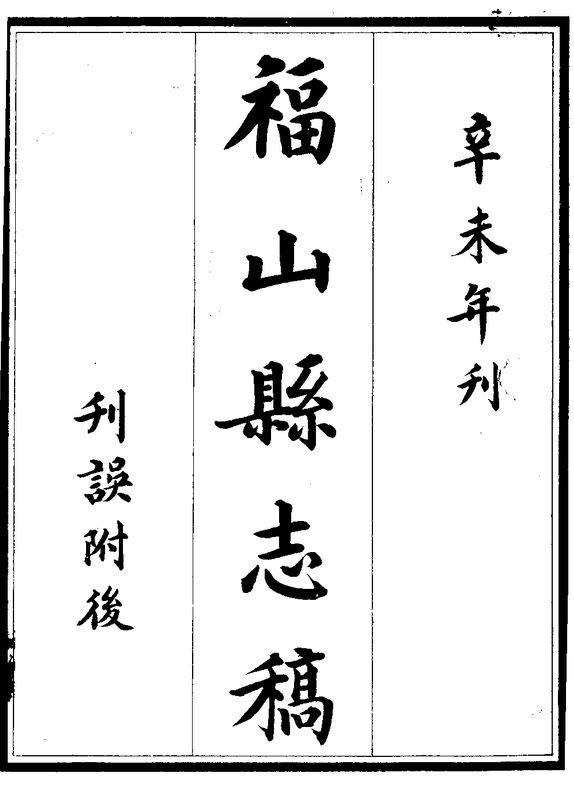 辛未年刊
福山縣志稿
刊誤附後